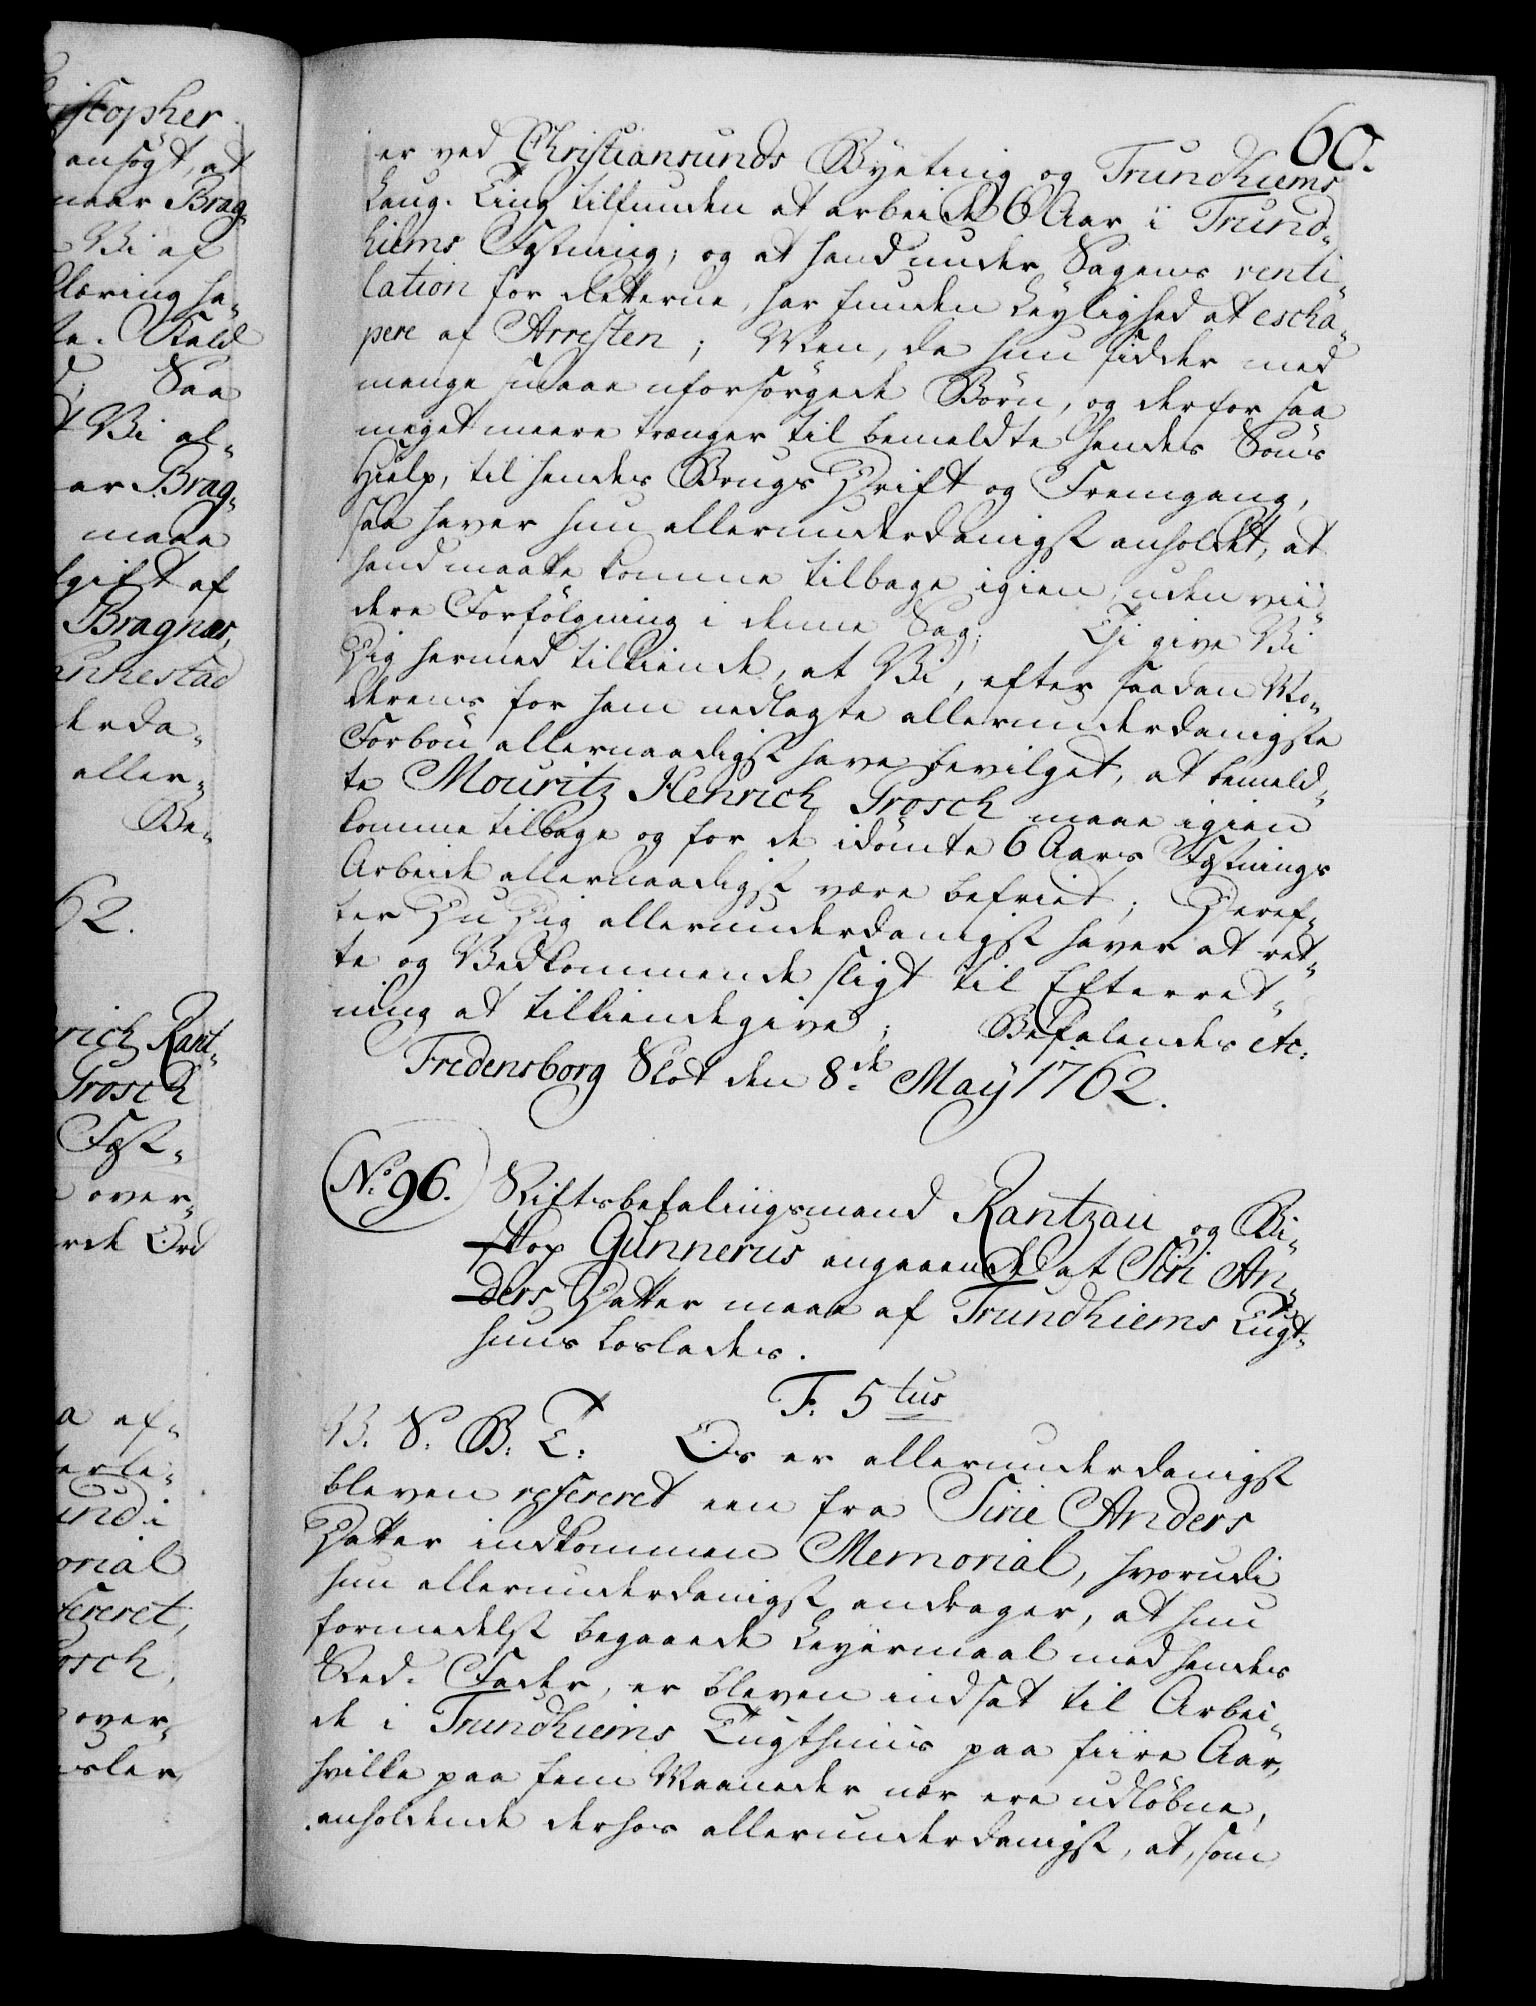 istopher
ansögt, at
naar Brag„
Vi af
klæring ha„
te. Kald
Saa
t Vi al„
ar Brag„
maae
lgift af
Bragnæs,
annestad
derda„
aller„
Be„
62.
rich Rant„
Grosch
Fæst„
over„
rede Ord
a ef„
terle„
und i
orial
fereret,
osch,
over„
isler
60.
er ved Christiansunds Byeting og Trundhiems
Laug-Ting tilfunden at arbeide 6 Aar i Trund„
hiems Fæstning; og at hand under Sagens venti„
lation for Retterne, har funden Leylighed at escha„
pere af Arresten; Men, da hun sidder med
mange smaae uforsörgede Börn, og derfor saa
meget meere trænger til bemeldte hendes Söns
Hielp, til hendes Brugs Drift og Fremgang,
saa haver hun allerunderdanigst anholdet, at
hand maatte komme tilbage igien, uden vii„
dere Forfölgning i denne Sag; Thi give Vi
Dig hermed tilkiende, at Vi, efter saadan Mo„
derens for ham nedlagte allerunderdanigste
Forbön allernaadigst have bevilget, at bemeld„
te Mouritz Henrich Grosch maae igien
komme tilbage og for de idömte 6 Aars Fæstnings
Arbeide allernaadigst være befriet; Deref„
ter Du Dig allerunderdanigst haver at ret„
te og Vedkommende sligt til Efterret„
ning at tilkiendegive; Befalendes etc:
Fredensborg Slot den 8de May 1762.
No 96. Stiftsbefalingsmand Rantzau og Bi„
skop Gunnerus angaaende at Siri An„
ders Datter maae af Trundhiems Tugt„
huus loslades.
F. 5tus
V. S. B. T: Os er allerunderdanigst
bleven refereret een fra Sirie Anders
Datter indkommen Memorial, hvorudi
hun allerunderdanigst andrager, at hun
formedelst begaaede Leyermaal med hendes
Sted-Fader, er bleven indsat til Arbei„
de i Trundhiems Tugthuus paa fiire Aar,
hvilke paa fem Maaneder nær ere udlöbne,
anholdende derhos allerunderdanigst, at, som